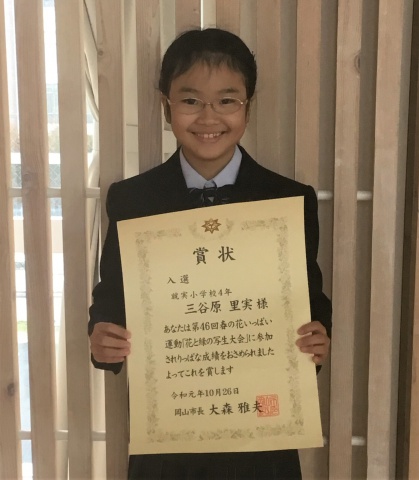 賞状
入選
就実小学校4年
三谷原 里実 様
あなたは第46回春の花いっぱい
運動「花と緑の写生大会」に参加
されりっぱな成績をおさめられました
よってこれを賞します
令和元年10月26日
岡山市長 大森 雅夫